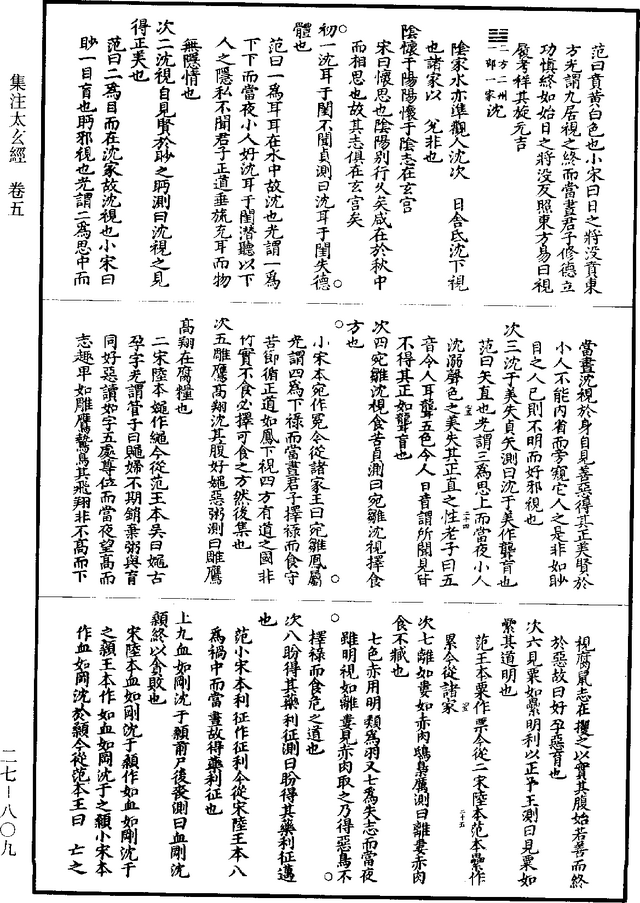 集注太玄經 卷五
范曰賁黃白色也小宋曰日之將没賁東
方光謂九居視之終而當晝君子修德立
功慎終如始日之將没反照東方易曰視
履考祥其旋元吉
二方二州
一部一家 沈
陰家水亦準觀入沈次 日舍氐沈下視
也諸家以 兌非也
陰懷于陽陽懷于陰志在玄宫
宋曰懷思也陰陽別行久矣咸在於秋中
而相思也故其志俱在玄宫矣
初一沈耳于閨不聞貞測曰沈耳于閨失德
體也
范曰一爲耳耳在水中故沈也光謂一爲
下下而當夜小人好沈耳于閨潜聽以下
人之隱私不聞君子正道垂旒充耳而物
無隱情也
次二沈視自見賢於眇之眄測曰沈視之見
得正美也
范曰二爲目而在沈家故沈視也小宋曰
眇一目盲也眄邪視也光謂二爲思中而
當晝沈視於身自見善惡得其正美賢於
小人不能内省而旁窺它人之是非如眇
目之人已則不明而好邪視也
次三沈于美失貞矢測曰沈于美作聾盲也
范曰矢直也光謂三爲思上而當夜小人
沈溺聲色之美失其正直之性老子曰五
音令人耳聾五色令人目盲謂所聞見皆
不得其正如聾盲也
次四宛雛沈視食苦貞測曰宛雛沈視擇食
方也
小宋本宛作冤今從諸家王曰宛雛鳳屬
光謂四爲下祿而當晝君子擇祿而食守
苦節循正道如鳳下視四方有道之國非
竹實不食必擇可食之方然後集也
次五雕鷹高翔沈其腹好𡟎惡粥測曰雕鷹
高翔在腐糧也
二宋陸本𡟎作繩今從范王本吴曰𡟎古
孕字光謂管子曰𡟎婦不期銷棄粥與育
同好惡讀如字五處尊位而當夜望高而
志趣卑如雕鷹鷙鳥其飛翔非不高而下
視腐鼠志在攫之以實其腹始若善而終
於惡故曰好孕惡育也
次六見粟如纍明利以正于王測曰見粟如
纍其道明也
范王本粟作票今從二宋陸本范本纍作
累今從諸家
次七離如婁如赤肉鴟梟厲測曰離婁赤肉
食不臧也
七色赤用明類爲羽又七爲失志而當夜
雖明視如離婁見赤肉取之乃得惡鳥不
擇祿而食危之道也
次八盼得其藥利征測曰盼得其藥利征邁
也
范小宋本利征作征利今從宋陸王本八
爲禍中而當晝故得藥利征也
上九血如剛沈于顙前尸後喪測曰血剛沈
顙終以貪敗也
宋陸本血如剛沈于顙作如血如剛沈于
之顙王本作如血如岡沈于之顙小宋本
作血如岡沈於顙今從范本王曰 亡之
二七－八〇九